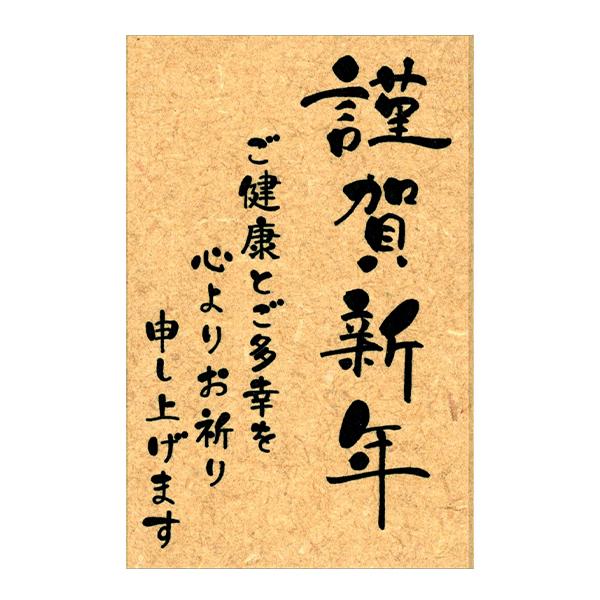 謹賀新年
ご健康とご多幸を
心よりお祈り
申し上げます